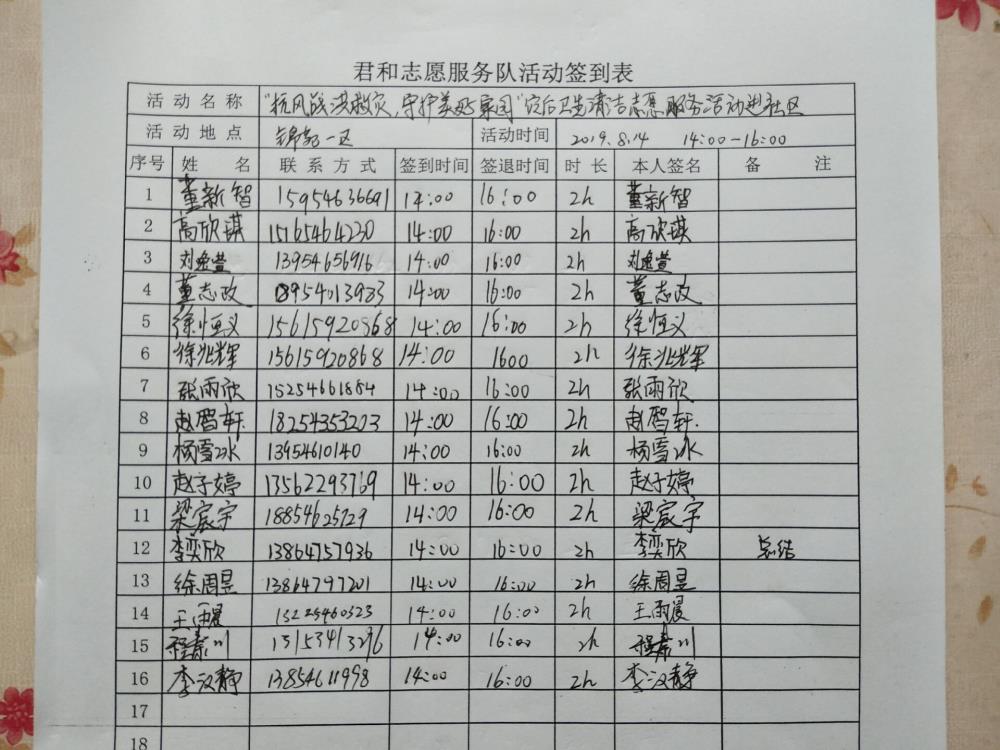 君和志愿服务队活动签到表
活动名称 "抗风战洪救灾,守护美好家园"灾后卫生清洁志愿服务活动进社区
活动地点 锦苑一区 活动时间 2019.8.14 14:00-16:00
序号 姓名 联系方式 签到时间 签退时间 时长 本人签名 备注
1 董新智 15954636691 14:00 16:00 2h 董新智
2 高欣琪 15165464230 14:00 16:00 2h 高欣琪
3 刘逸萱 13954656916 14:00 16:00 2h 刘逸萱
4 董志政 18954013983 14:00 16:00 2h 董志政
5 徐恒义 15615920868 14:00 16:00 2h 徐恒义
6 徐兆辉 15615920868 14:00 1600 2h 徐兆辉
7 张雨欣 15254661884 14:00 16:00 2h 张雨欣
8 赵智轩 18254353203 14:00 16:00 2h 赵智轩.
9 杨雪冰 13954610140 14:00 16:00 2h 杨雪冰
10 赵子婷 13562293769 14:00 16:00 2h 赵子婷
11 梁宸宇 18854625729 14:00 16:00 2h 梁宸宇
12 李奕欣 13864757936 14:00 16:00 2h 李奕欣 总结
13 徐周昱 13864797201 14:00 16:00 2h 徐周昱
14 王雨晨 13225460323 14:00 16:00 2h 王雨晨
15 14:00 16:00 2h
16 李汶静 13854611998 14:00 16:00 2h 李汶静
17
18